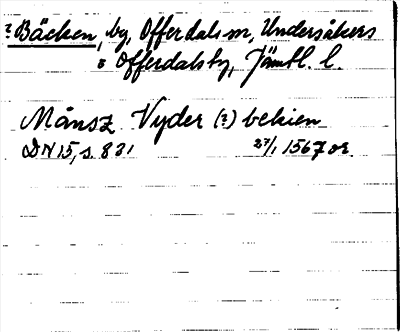 ? Bäcken, by, Offerdals sn, Undersåkers
o Offerdals tg, Jämtl. l.
Månsz Vyder (?) bekien
DN 15, s. 831 27/1 1567 or.